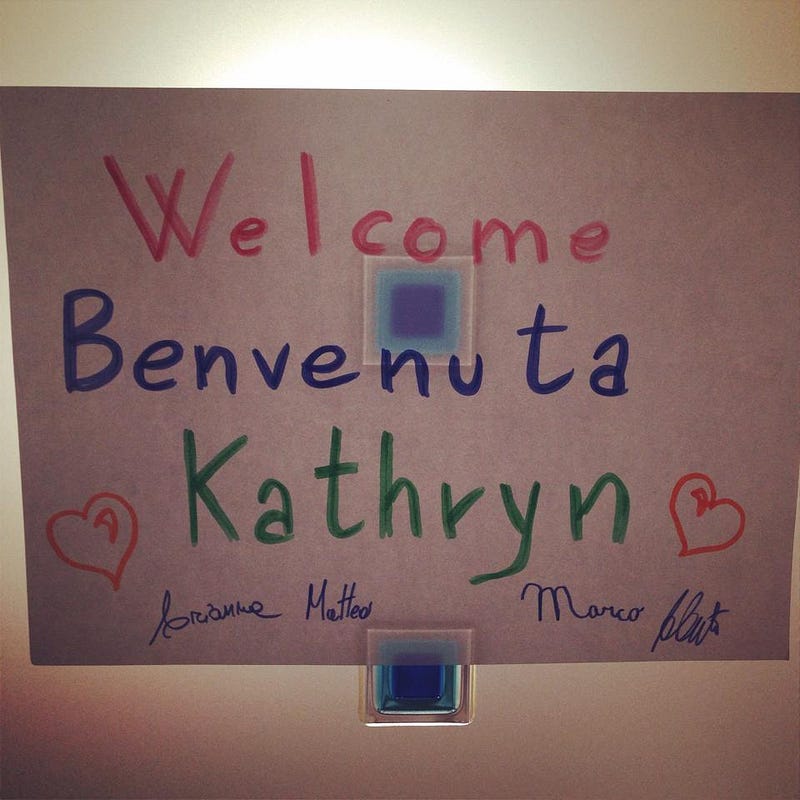 Welcome
Benvenuta
Kathryn
Arianna Matteo Marco